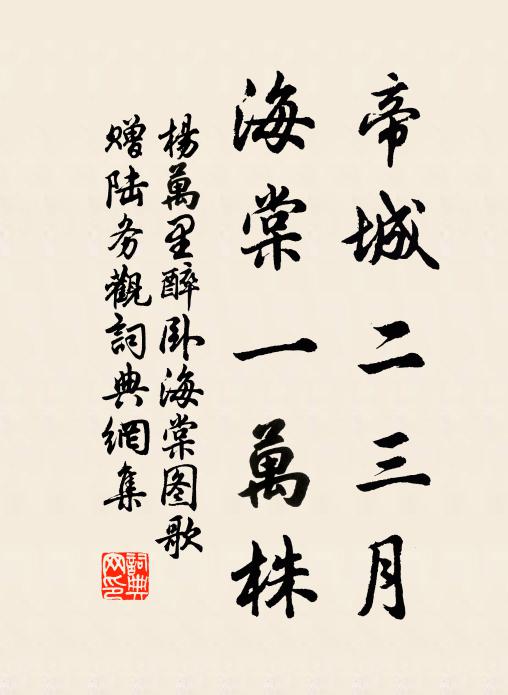 帝城二三月
海棠一萬株
楊萬里醉卧海棠图歌
赠陆务觀詞典網集
詞典
网印